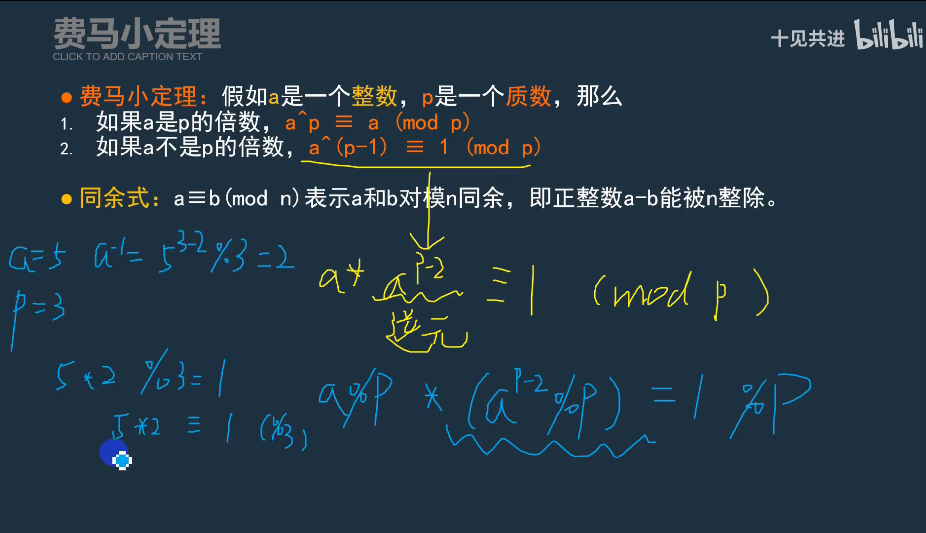 费马小定理
CLICK TO ADD CAPTION TEXT
十见共进 bilibili
● 费马小定理：假如a是一个整数，p是一个质数，那么
1. 如果a是p的倍数，a^p ≡ a (mod p)
2. 如果a不是p的倍数，a^(p-1) ≡ 1 (mod p)
● 同余式：a≡b(mod n)表示a和b对模n同余，即正整数a-b能被n整除。
a=5 a⁻¹= 5³⁻² %3 =2
p=3
a* a^(p-2) ≡ 1 (mod p)
逆元
5*2 %3= 1
5*2 ≡ 1 (%3)
a%P * (a^(p-2)%P) = 1 %P